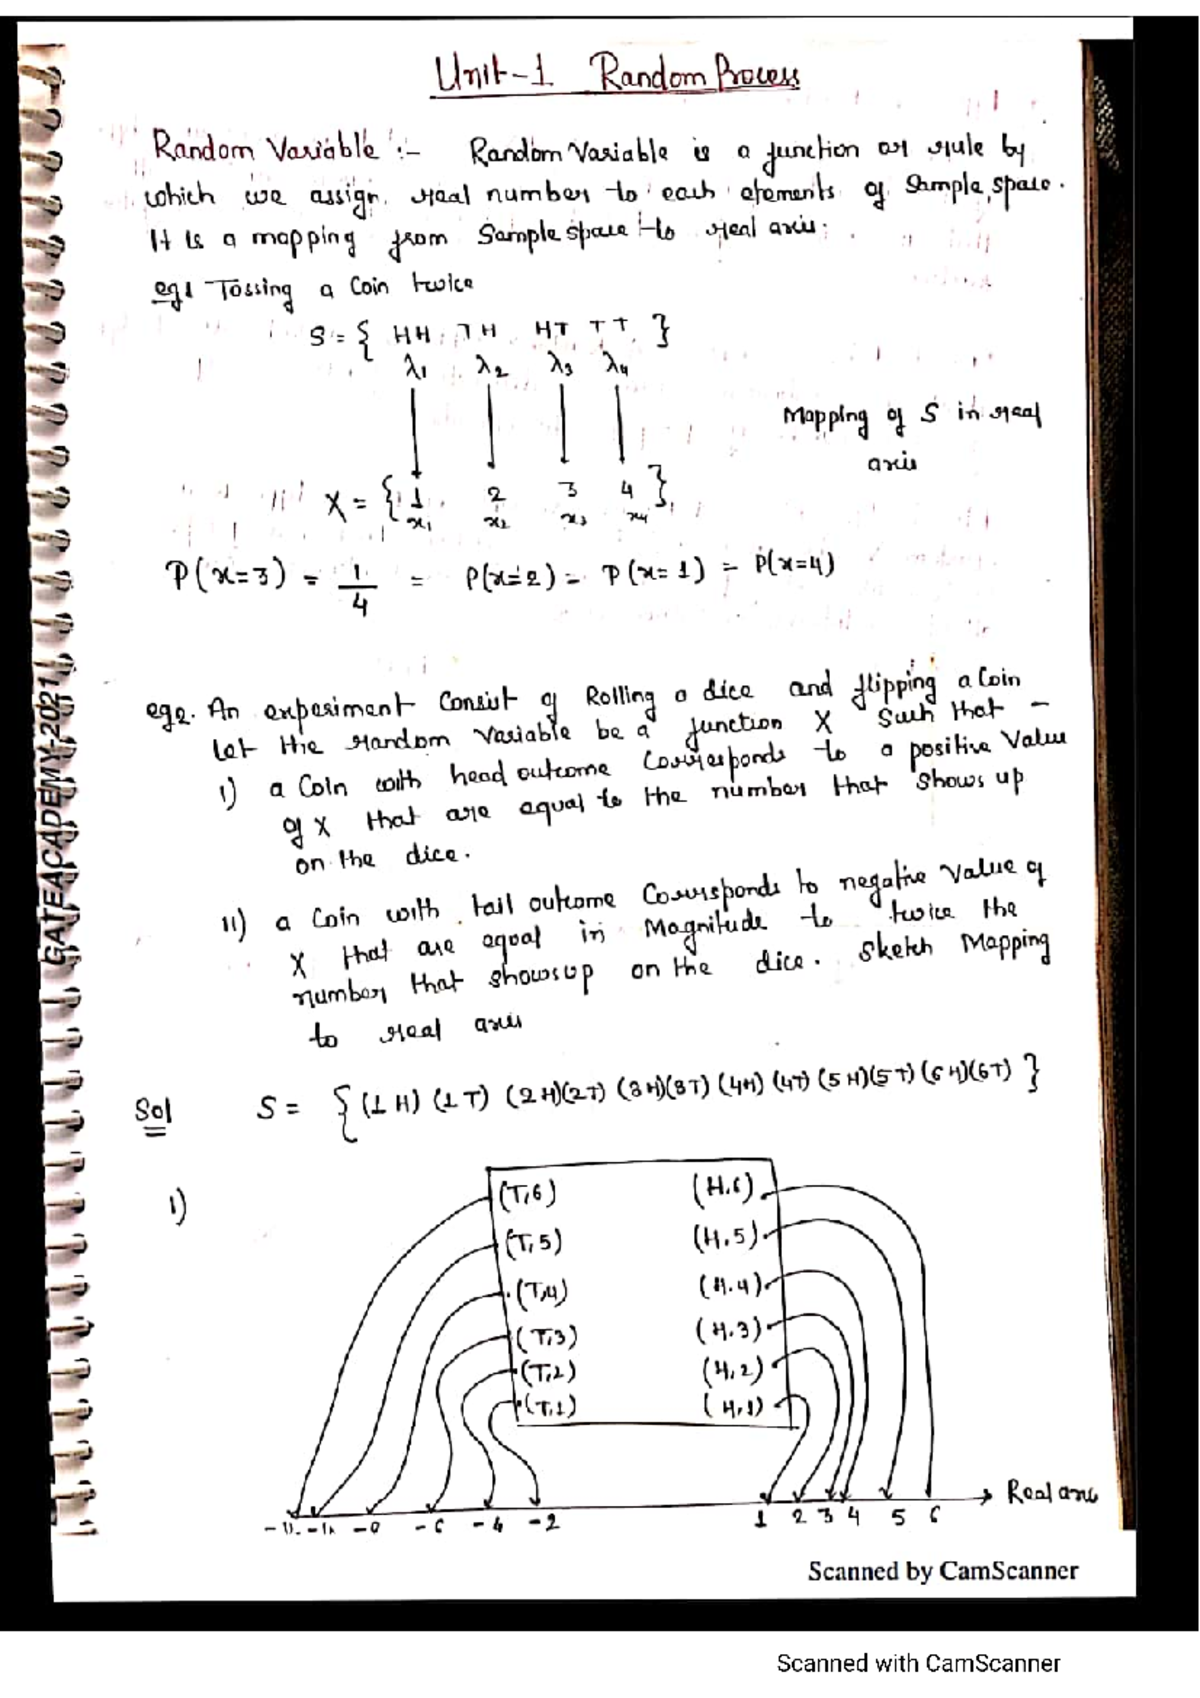 Unit-1 Random Process
Random Variable :- Random Variable is a function or rule by
which we assign real number to each elements of Sample space.
It is a mapping from Sample space to real axis.
eg1 Tossing a Coin twice
S = { HH TH HT TT }
λ1 λ2 λ3 λ4
Mapping of S in real
axis
X = { 1 2 3 4 }
x1 x2 x3 x4
P(x=3) = 1/4 = P(x=2) = P(x=1) = P(x=4)
eg2. An experiment Consist of Rolling a dice and flipping a Coin
let the random variable be a function X Such that -
i) a Coin with head outcome Corresponds to a positive Value
of X that are equal to the number that shows up
on the dice.
ii) a Coin with tail outcome Corresponds to negative Value of
X that are equal in Magnitude to twice the
number that shows up on the dice. Sketch Mapping
to real axis
Sol S = { (1 H) (1 T) (2 H)(2T) (3 H)(3T) (4H) (4T) (5 H)(5T) (6 H)(6T) }
1)
(T,6) (H,6)
(T,5) (H,5)
(T,4) (H,4)
(T,3) (H,3)
(T,2) (H,2)
(T,1) (H,1)
Real axis
-6 -4 -2 1 2 3 4 5 6
GATEACADEMY-2021
Scanned by CamScanner
Scanned with CamScanner